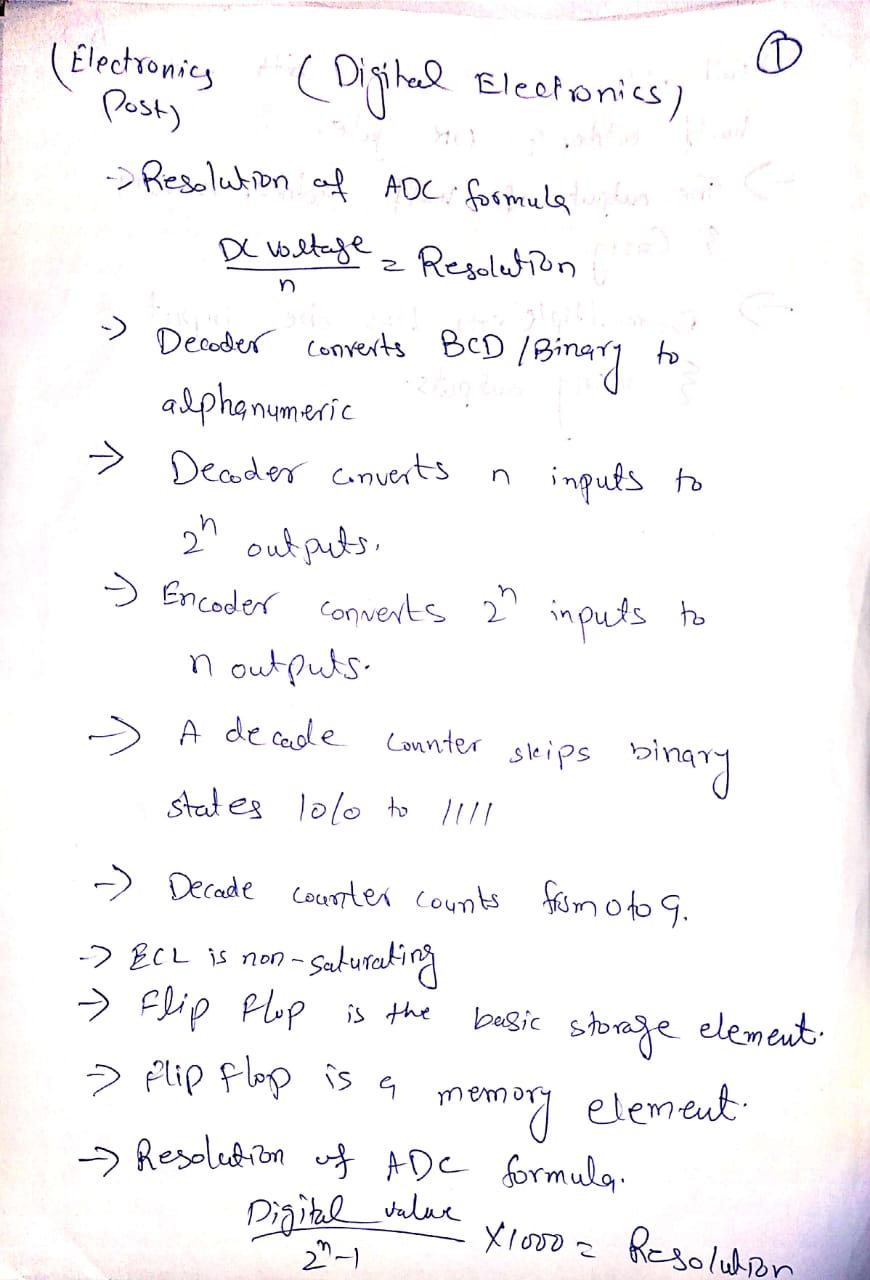 (Electronics Post)
(Digital Electronics)
①
-> Resolution of ADC formula
DC voltage / n = Resolution
-> Decoder converts BCD/Binary to
alphanumeric
-> Decoder converts n inputs to
2^n outputs.
-> Encoder converts 2^n inputs to
n outputs.
-> A decade counter skips binary
states 1010 to 1111
-> Decade counter counts from 0 to 9.
-> ECL is non-saturating
-> Flip Flop is the basic storage element.
-> Flip flop is a memory element.
-> Resolution of ADC formula.
Digital value / 2^n-1 X1000 = Resolution